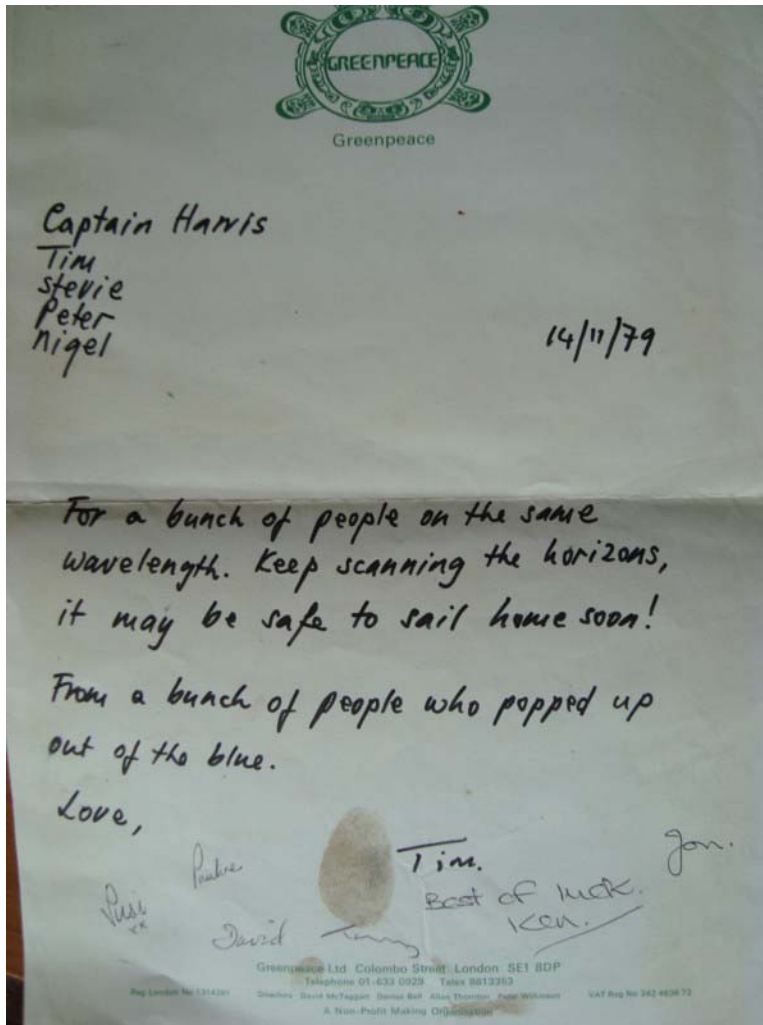 GREENPEACE
Greenpeace
Captain Harris
Tim
Stevie
Peter
Nigel
14/11/79
For a bunch of people on the same
wavelength. Keep scanning the horizons,
it may be safe to sail home soon!
From a bunch of people who popped up
out of the blue.
Love,
Tim.
Jon.
Pauline
Best of luck.
Susi
xx
Ken.
David
Greenpeace Ltd Colombo Street London SE1 8DP
Telephone 01-633 0929 Telex 8813363
Directors David McTaggart Denise Bell Allan Thornton Peter Wilkinson
A Non-Profit Making Organisation